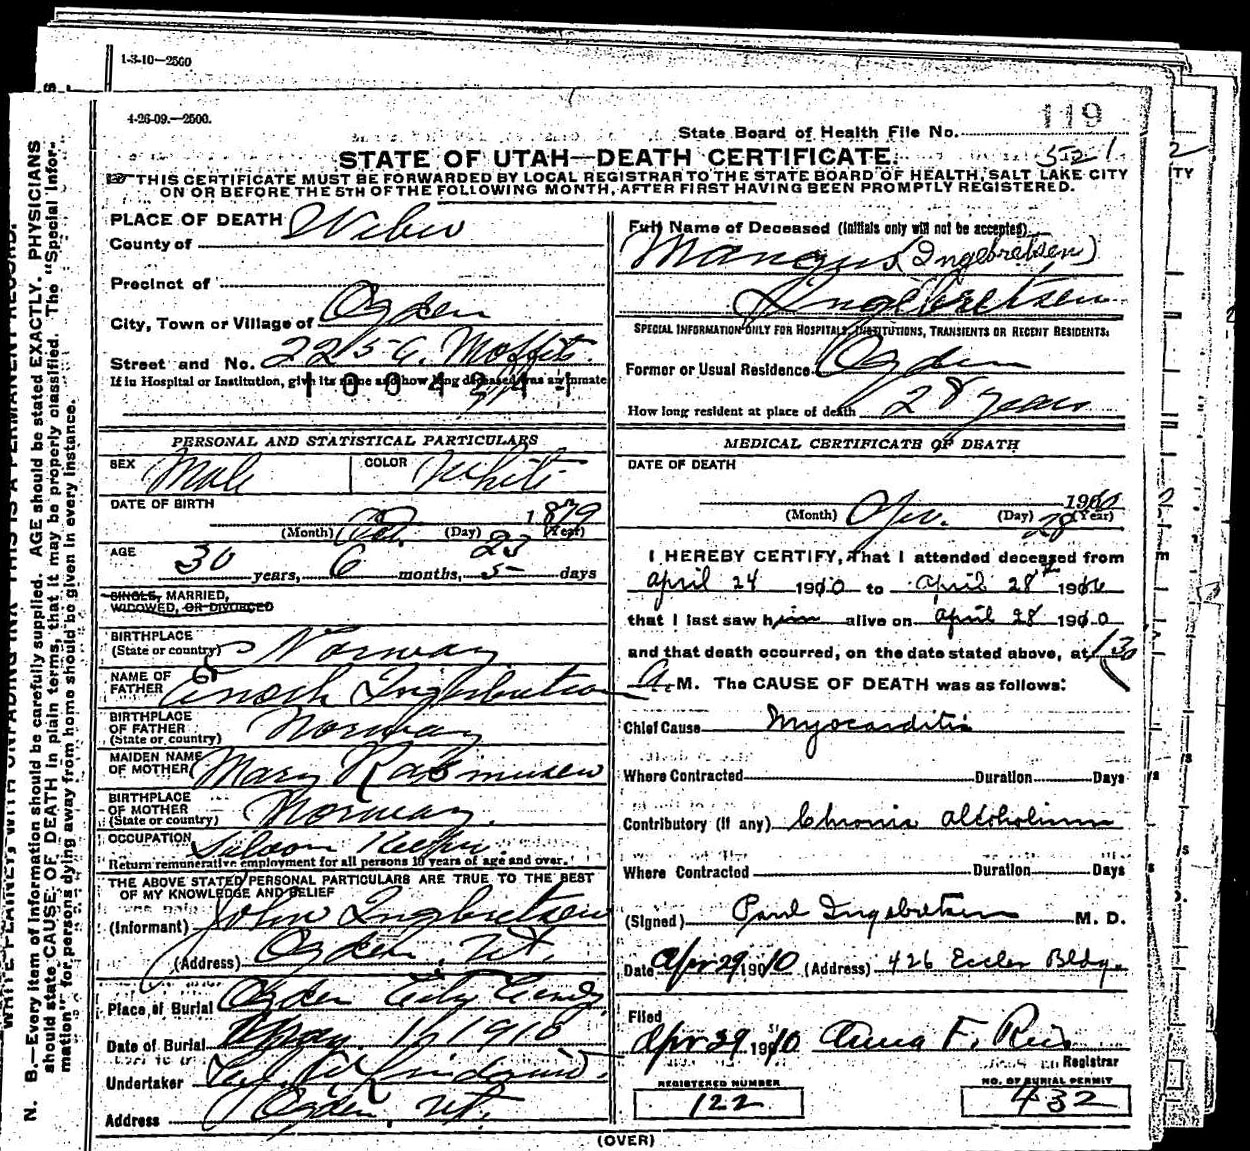 1-3-10—2500
4-26-09.—2500.
119
State Board of Health File No.
521
STATE OF UTAH—DEATH CERTIFICATE.
THIS CERTIFICATE MUST BE FORWARDED BY LOCAL REGISTRAR TO THE STATE BOARD OF HEALTH, SALT LAKE CITY
ON OR BEFORE THE 5TH OF THE FOLLOWING MONTH, AFTER FIRST HAVING BEEN PROMPTLY REGISTERED.
PLACE OF DEATH
County of Weber
Precinct of
City, Town or Village of Ogden
Street and No. 2215
If in Hospital or Institution, give its name and how long deceased was an inmate
1004244
Full Name of Deceased (Initials only will not be accepted)
Mangus (Ingebretsen)
Ingebretsen
SPECIAL INFORMATION ONLY FOR HOSPITALS, INSTITUTIONS, TRANSIENTS OR RECENT RESIDENTS.
Former or Usual Residence Ogden
How long resident at place of death 28 years
PERSONAL AND STATISTICAL PARTICULARS
SEX Male COLOR White
DATE OF BIRTH
1879
(Month) Oct. (Day) 23 (Year)
AGE
30 years, 6 months, 5 days
SINGLE, MARRIED,
WIDOWED, OR DIVORCED
BIRTHPLACE
(State or country) Norway
NAME OF
FATHER Enoch Ingebretsen
BIRTHPLACE
OF FATHER
(State or country) Norway
MAIDEN NAME
OF MOTHER Mary Rasmusen
BIRTHPLACE
OF MOTHER
(State or country) Norway.
OCCUPATION Saloon Keeper
Return remunerative employment for all persons 10 years of age and over.
THE ABOVE STATED PERSONAL PARTICULARS ARE TRUE TO THE BEST
OF MY KNOWLEDGE AND BELIEF
(Informant) John Ingebretsen
(Address) Ogden, Ut.
Place of Burial Ogden City Cemy
Date of Burial May 1st 1910
Undertaker
Address Ogden Ut.
MEDICAL CERTIFICATE OF DEATH
DATE OF DEATH
1910
(Month) Apr. (Day) 28 (Year)
I HEREBY CERTIFY, That I attended deceased from
april 24 1910 to april 28th 1910
that I last saw him alive on april 28 1910
and that death occurred, on the date stated above, at 1 30
A. M. The CAUSE OF DEATH was as follows:
Chief Cause Myocarditis
Where Contracted Duration Days
Contributory (if any) Chronic alcoholism
Where Contracted Duration Days
(Signed) Paul Ingebretsen M. D.
Date Apr 29 1910 (Address) 426 Eccles Bldg.
Filed
Apr 29 1910 Anna F. Reis
Registrar
REGISTERED NUMBER
122
NO. OF BURIAL PERMIT
432
(OVER)
N. B.—Every item of information should be carefully supplied. AGE should be stated EXACTLY. PHYSICIANS
should state CAUSE OF DEATH in plain terms, that it may be properly classified. The "Special Infor-
mation" for persons dying away from home should be given in every instance.
WRITE PLAINLY, WITH UNFADING INK—THIS IS A PERMANENT RECORD.